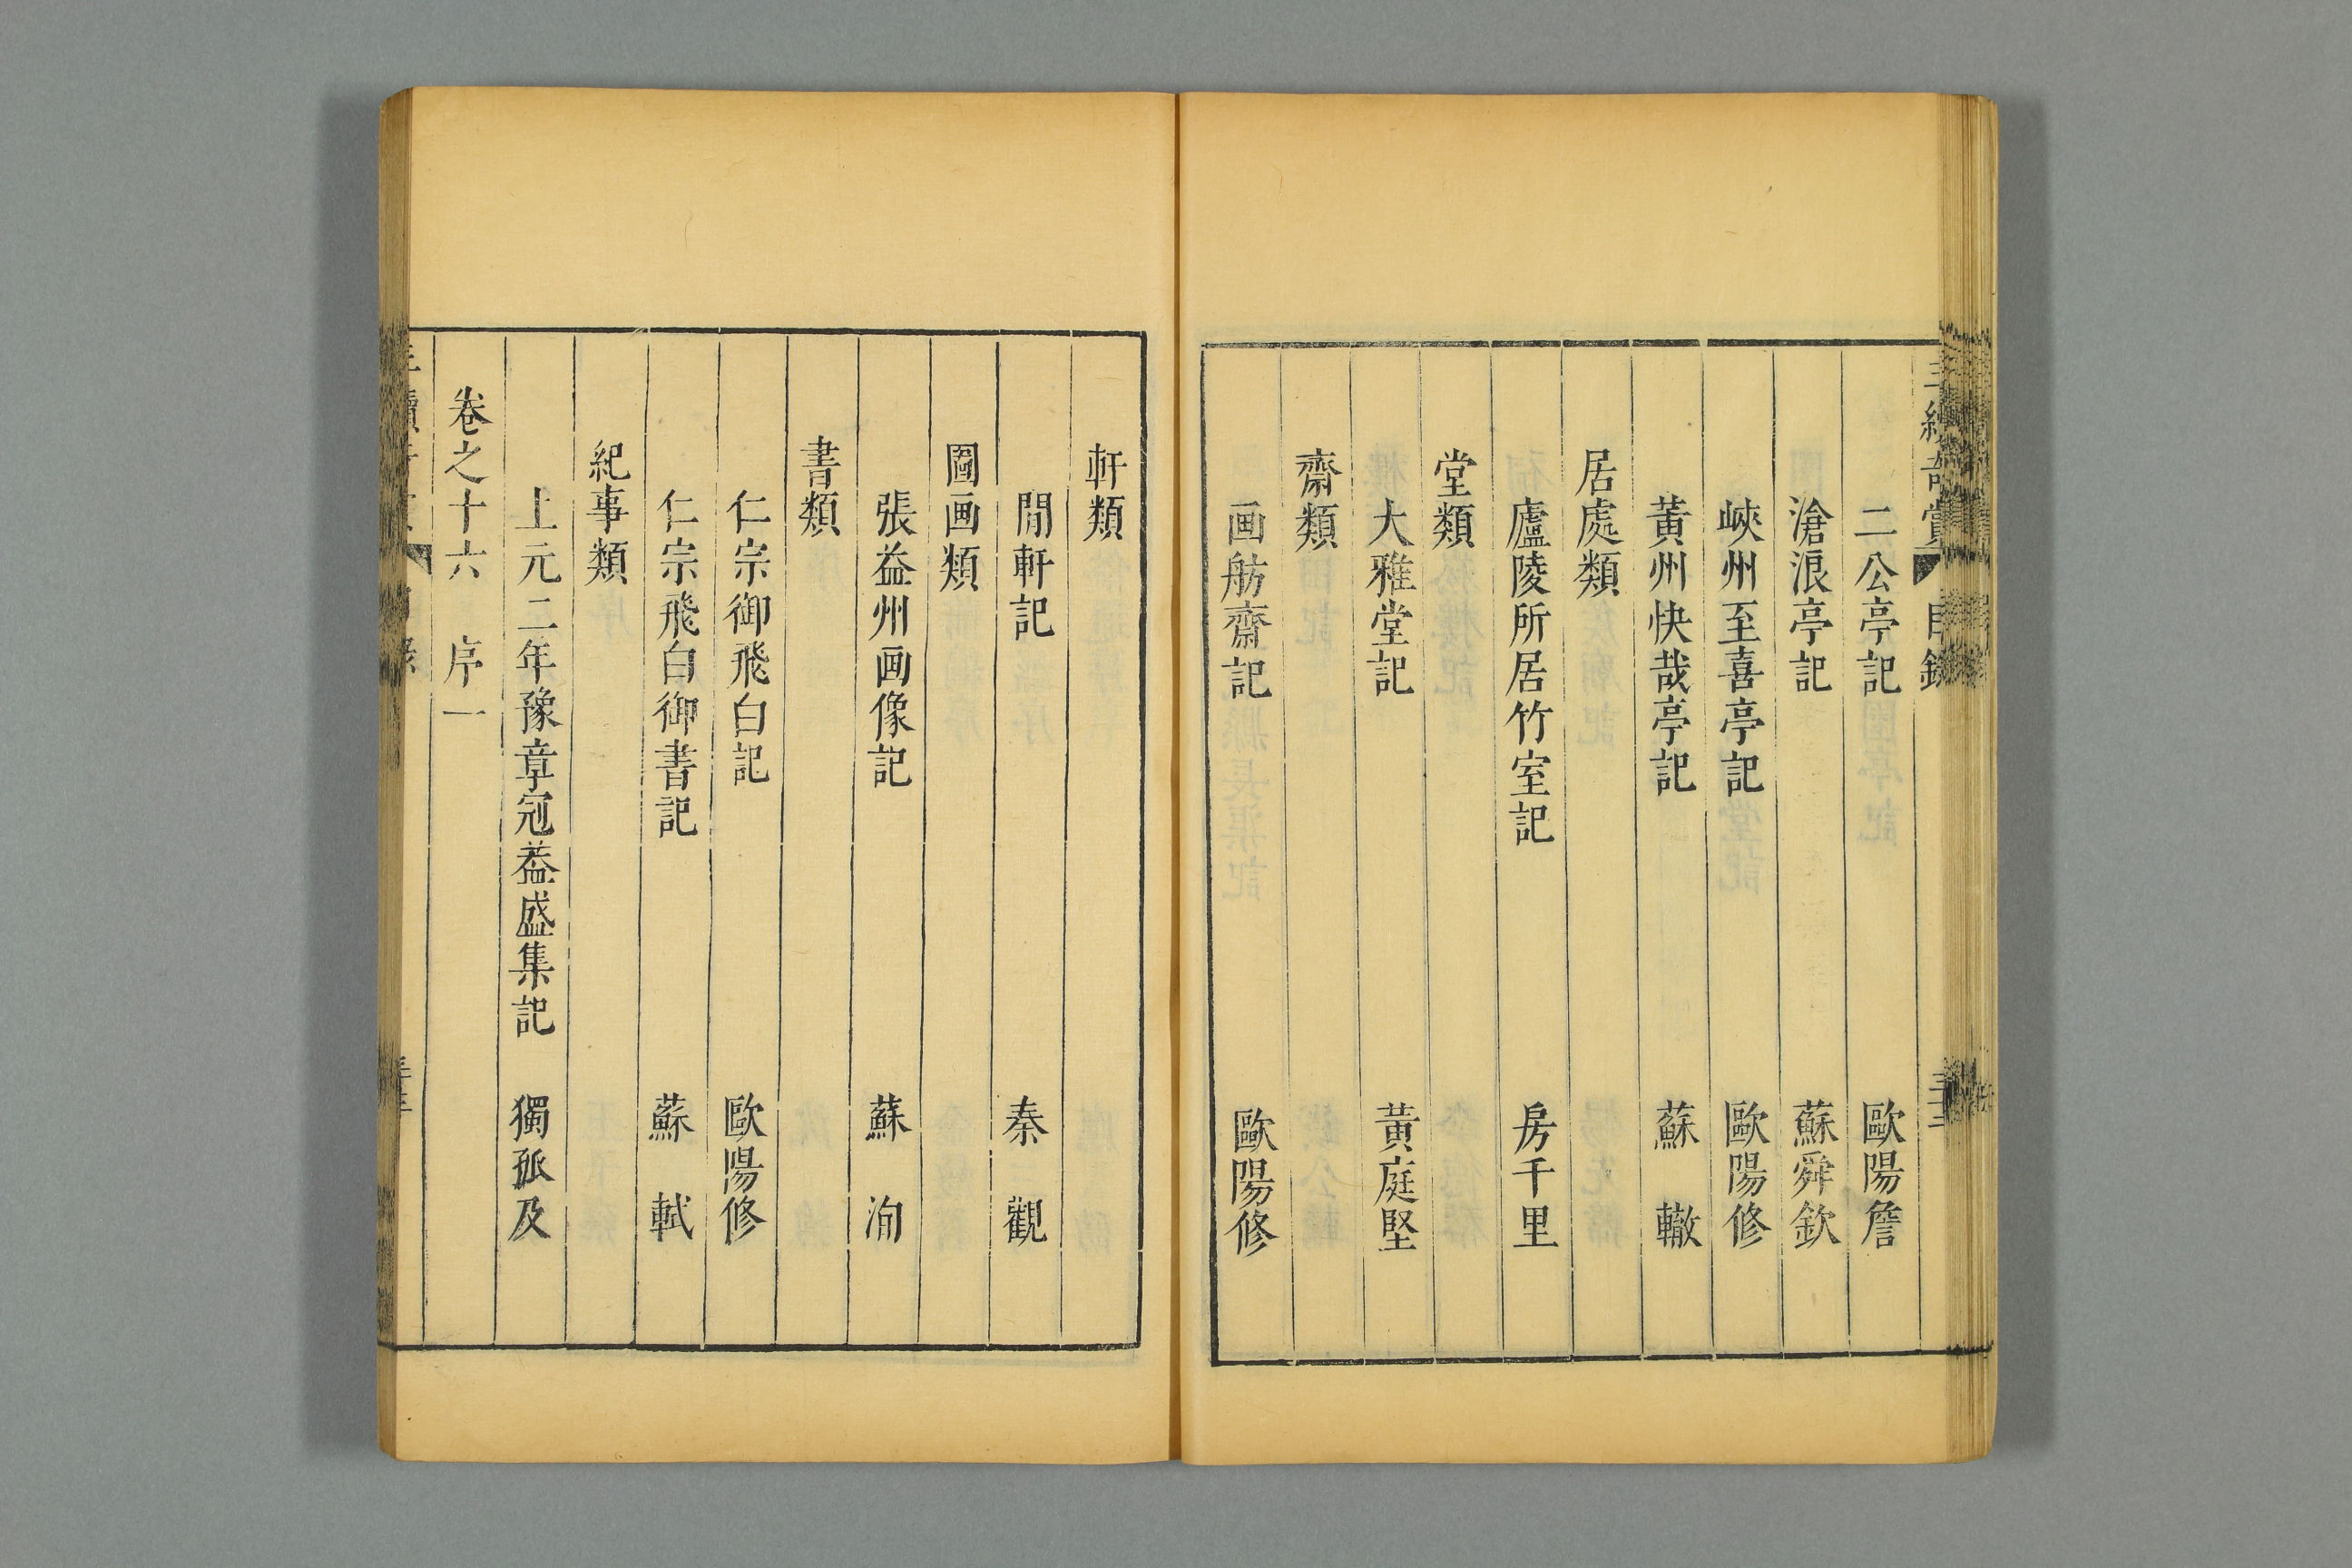 二公亭記 歐陽詹
滄浪亭記 蘇舜欽
峽州至喜亭記 歐陽修
黃州快哉亭記 蘇轍
居處類
廬陵所居竹室記 房千里
堂類
大雅堂記 黃庭堅
齋類
画舫齋記 歐陽修
軒類
閒軒記 秦觀
圖画類
張益州画像記 蘇洵
書類
仁宗御飛白記 歐陽修
仁宗飛白御書記 蘇軾
紀事類
上元二年豫章冠葢盛集記 獨孤及
卷之十六 序一